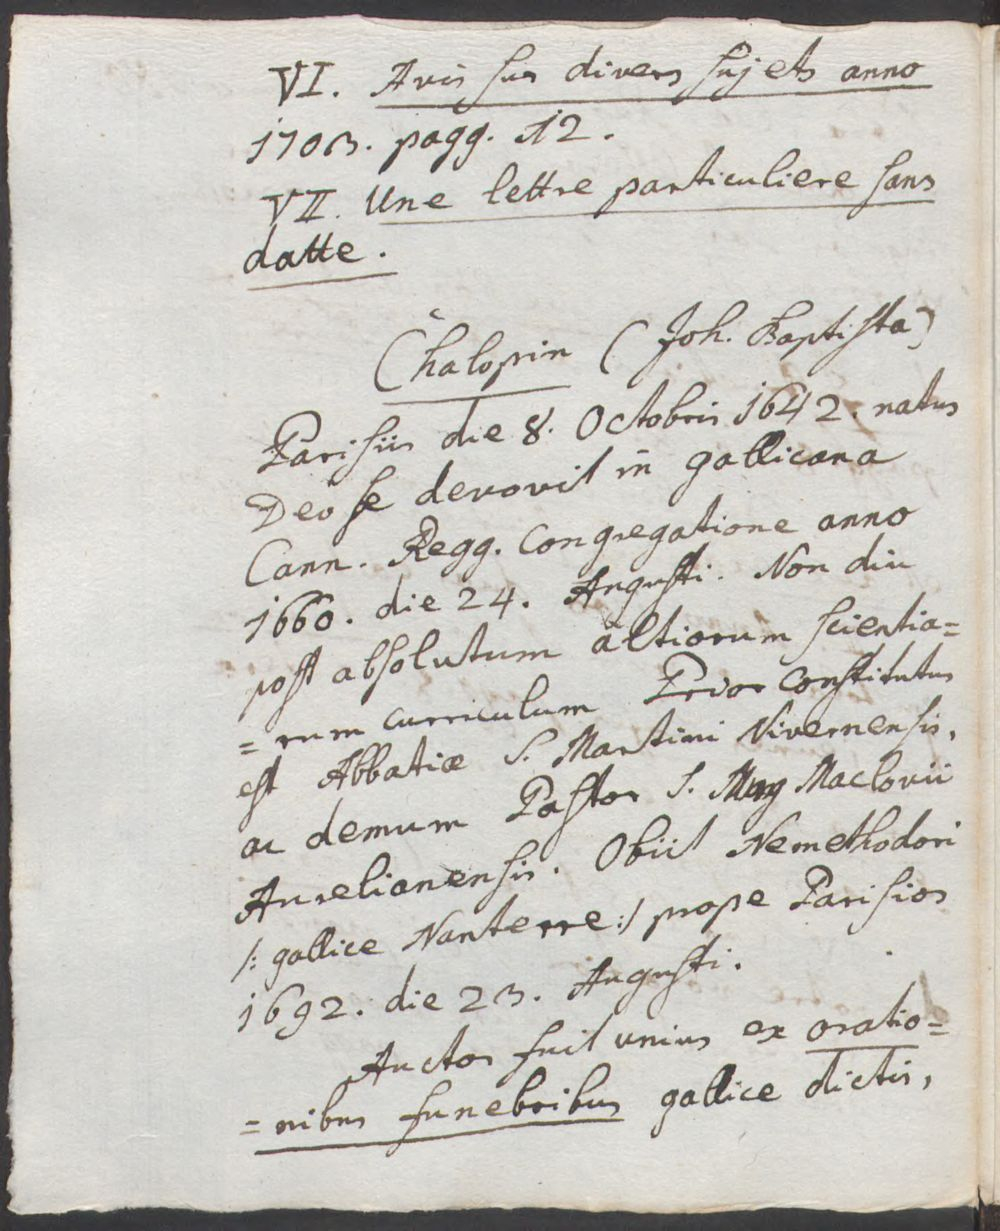 VI. Avis sur divers sujets anno
1703. pagg. 12.
VII. Une lettre particuliere sans
datte.
Chalopin (Joh. Baptista)
Parisiis die 8. Octobris 1642. natus
Deo se devovit in gallicana
Cann. Regg. Congregatione anno
1660. die 24. Augusti. Non diu
post absolutum altiorum scientia=
=rum curriculum Prior constitutus
est Abbatiæ S. Martini Nivernensis,
ac demum Pastor S. Maclovii
Aurelianensis. Obiit Nemethodori
/: gallice Nanterre :/ prope Parisios
1692. die 23. Augusti.
Auctor fuit unius ex oratio=
=nibus funebribus gallice dictis,